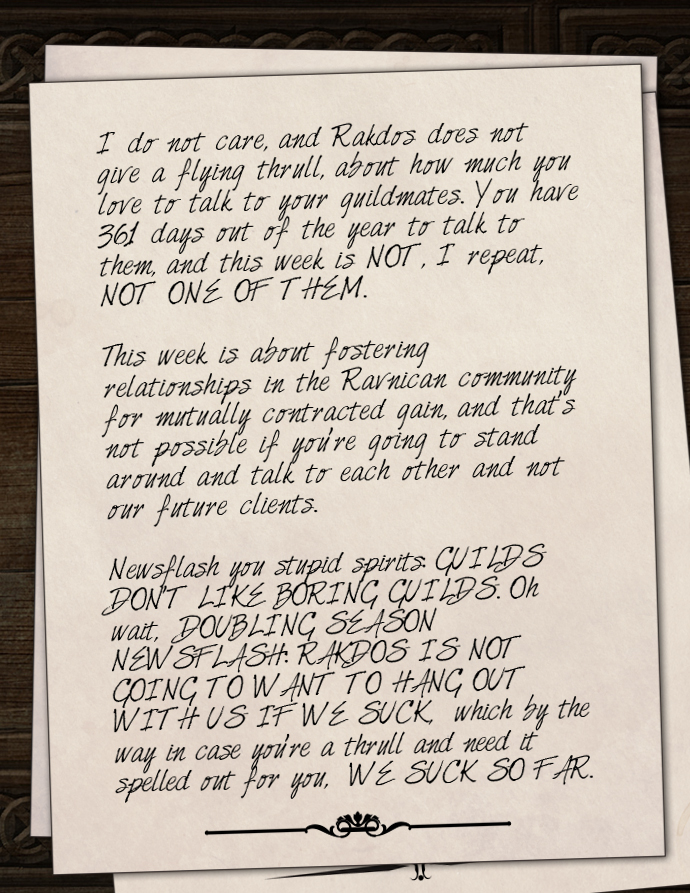 I do not care, and Rakdos does not
give a flying thrull, about how much you
love to talk to your guildmates. You have
361 days out of the year to talk to
them, and this week is NOT, I repeat,
NOT ONE OF THEM.
This week is about fostering
relationships in the Ravnican community
for mutually contracted gain, and that's
not possible if you're going to stand
around and talk to each other and not
our future clients.
Newsflash you stupid spirits: GUILDS
DON'T LIKE BORING GUILDS. Oh
wait, DOUBLING SEASON
NEWSFLASH: RAKDOS IS NOT
GOING TO WANT TO HANG OUT
WITH US IF WE SUCK, which by the
way in case you're a thrull and need it
spelled out for you, WE SUCK SO FAR.